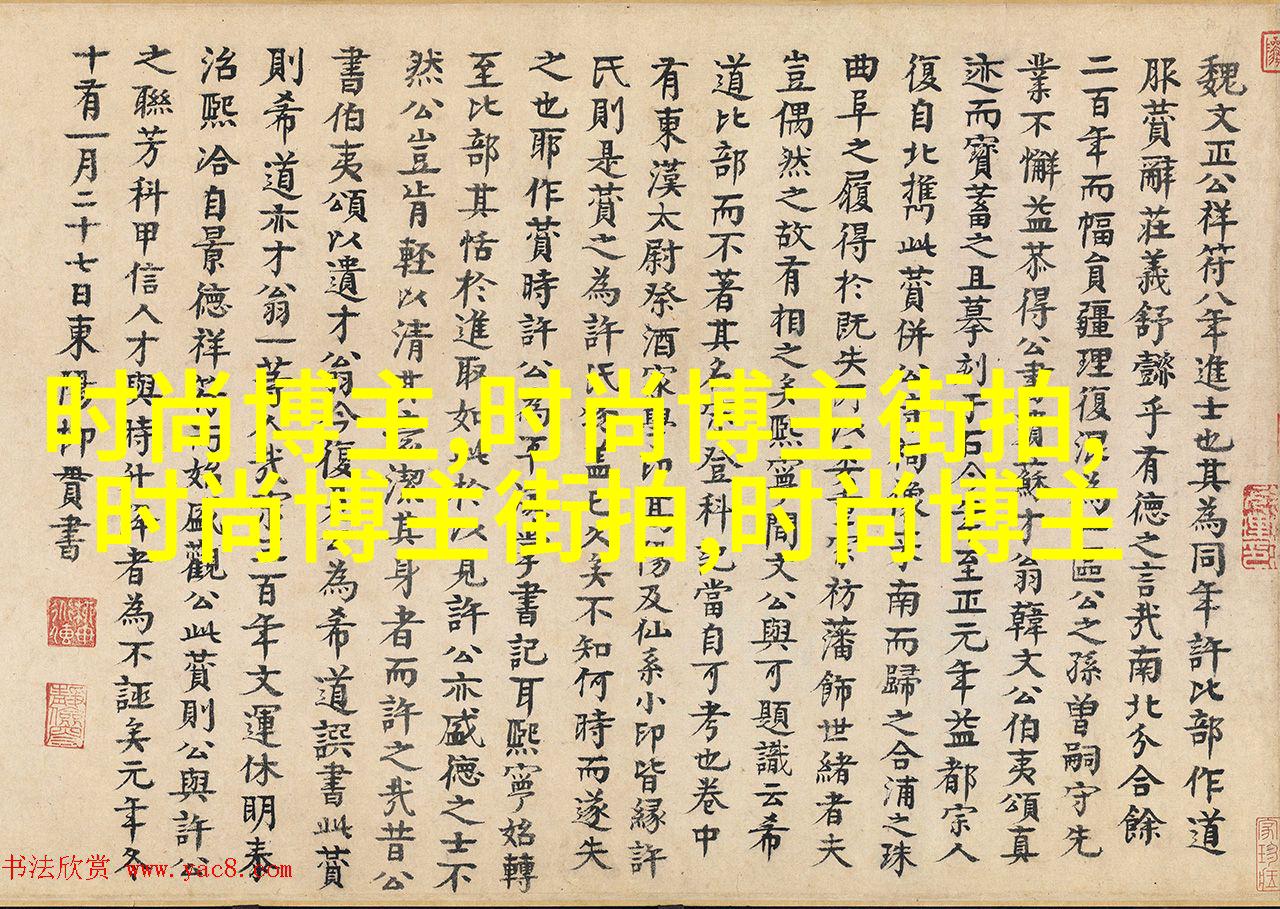 魏文正公祥符八年進士也其為同年許比部作道
服賛辭莊義舒懿乎有德之言㢤南北分合餘
二百年而幅貟疆理復混為區公之孫曽嗣守先
業不懈益恭得公書蘇才翁韓文公伯夷頌真
迹而寶蓄之且摹刻于石今至正元年益都宗人
復自北携此賛併公南而歸之合浦之珠
曲阜之履得於既失祊藩飾世緒者夫
豈偶然之故有相之矣熙寧間文公與可題識云希
道比部而不著其名登科記當自可考也卷中
有東漢太尉祭酒家學印及仙系小印皆縁許
氏則是賛之為許氏物蓋已久矣不知何時而遂失
之也耶作賛時許公為掌書記耳熙寧始轉
至比部其恬於進取如此於以見許公亦盛德之士不
然公豈肯輕以清其言潔其身者而許之㢤昔公
書伯夷頌以遺才翁今復為希道譔書此賛
則希道亦才翁一等人㢤宋百年文運休明泰
治熙洽自景德祥符而始盛觀公此賛則公與許公
之聯芳科甲信人才與時升降者為不誣矣元年冬
十有一月二十七日東陽柳貫書
时尚博主,时尚博主街拍,
时尚博主街拍,时尚博主
书法欣赏 www.yac8.com